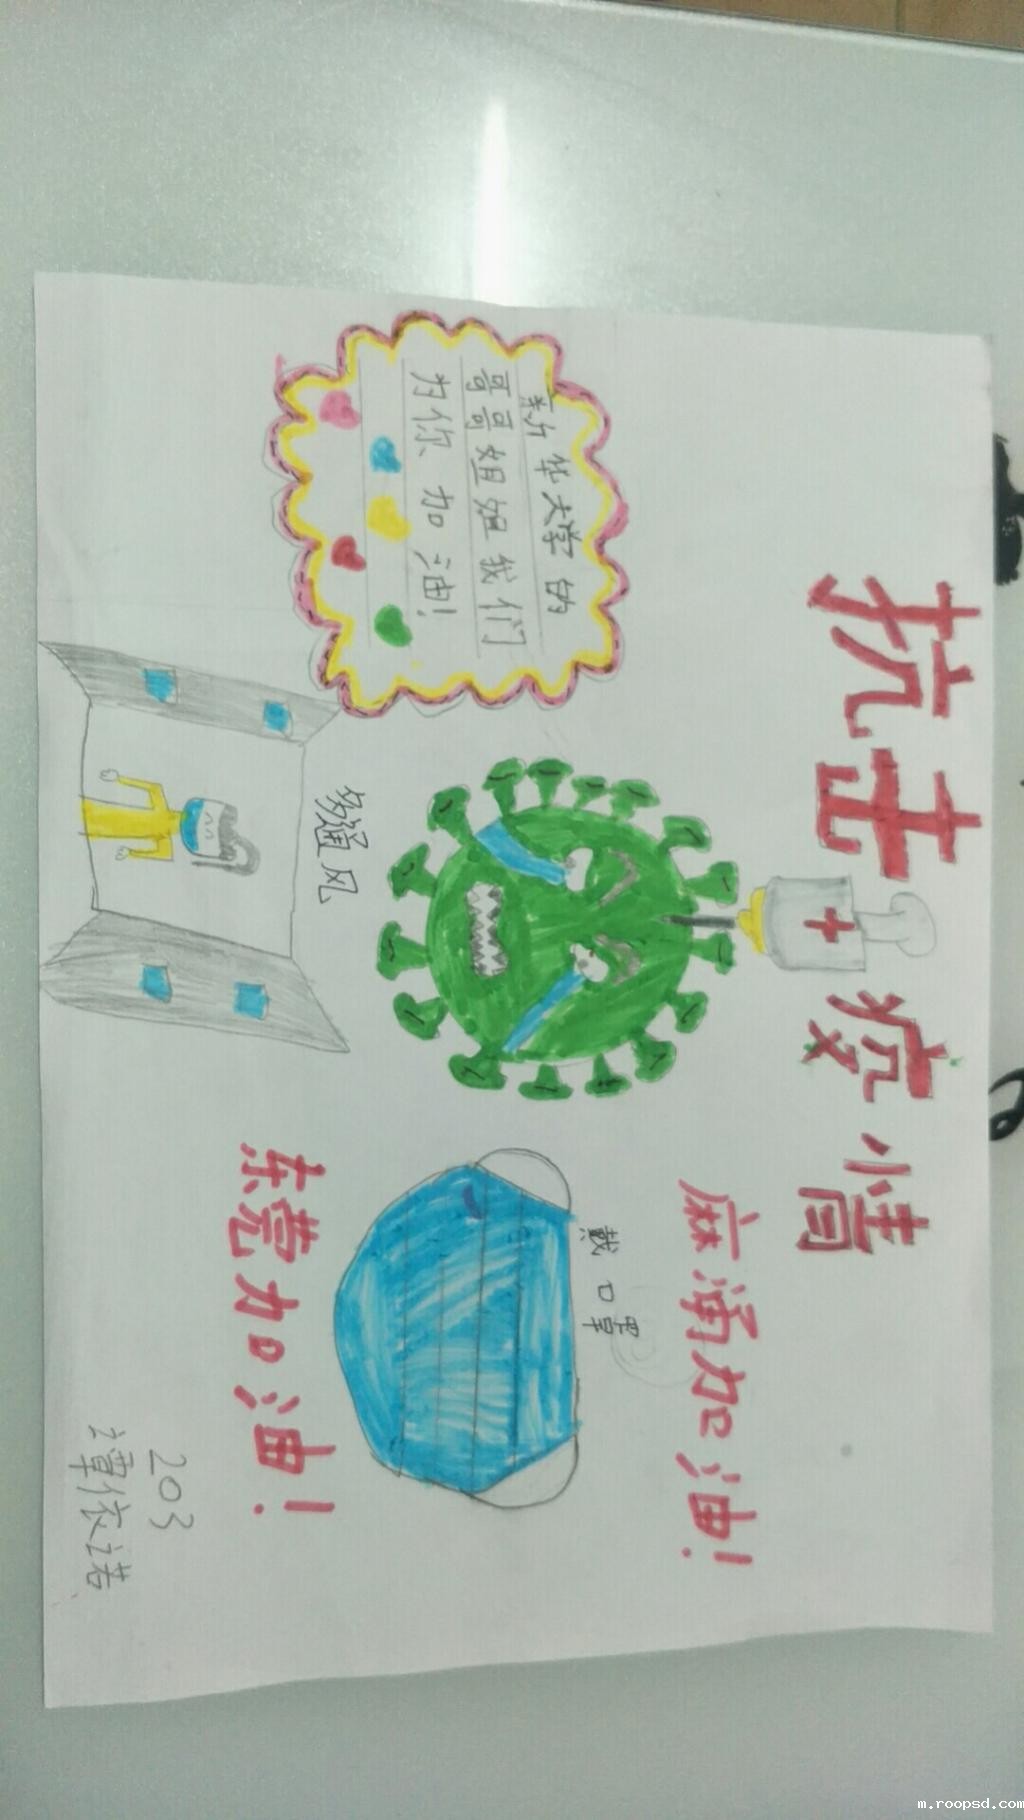 抗击疫情
麻涌加油!
新华大学的
哥哥姐姐我们
为你加油!
戴口罩
多通风
东莞加油!
203
谭依诺
m.roopsd.com